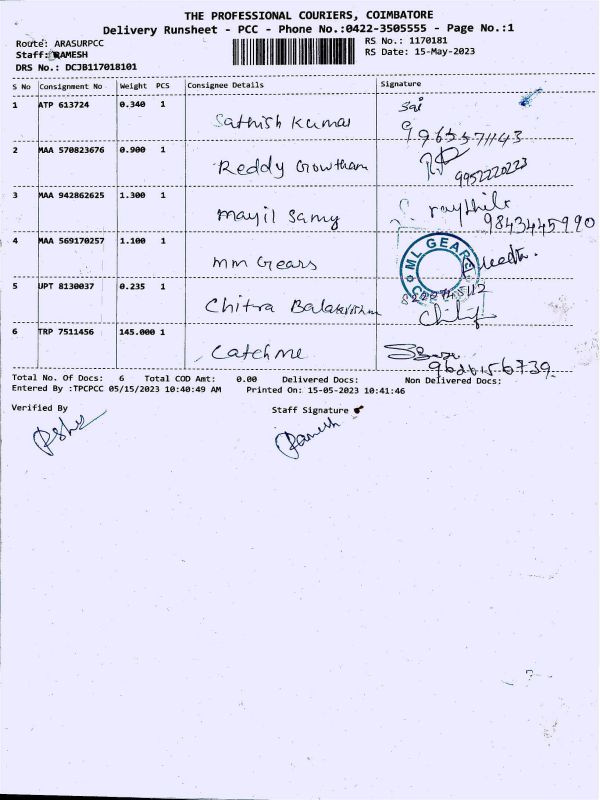 THE PROFESSIONAL COURIERS, COIMBATORE
Delivery Runsheet - PCC - Phone No.:0422-3505555 - Page No.:1
Route: ARASURPCC
RS No.: 1170181
Staff: RAMESH
RS Date: 15-May-2023
DRS No.: DCJB117018101
S No Consignment No Weight PCS Consignee Details Signature
1 ATP 613724 0.340 1 Sathish Kumar Sai
2 MAA 570823676 0.900 1 Reddy Gowtham
9952220223
3 MAA 942862625 1.300 1 Mayil Samy
9843445990
4 MAA 569170257 1.100 1 MM Gears
ML GEARS
5 UPT 8130037 0.235 1 Chitra
6 TRP 7511456 145.000 1 Catchme
Total No. Of Docs: 6 Total COD Amt: 0.00 Delivered Docs: Non Delivered Docs:
Entered By :TPCPCC 05/15/2023 10:40:49 AM Printed On: 15-05-2023 10:41:46
Verified By Staff Signature
Ramesh